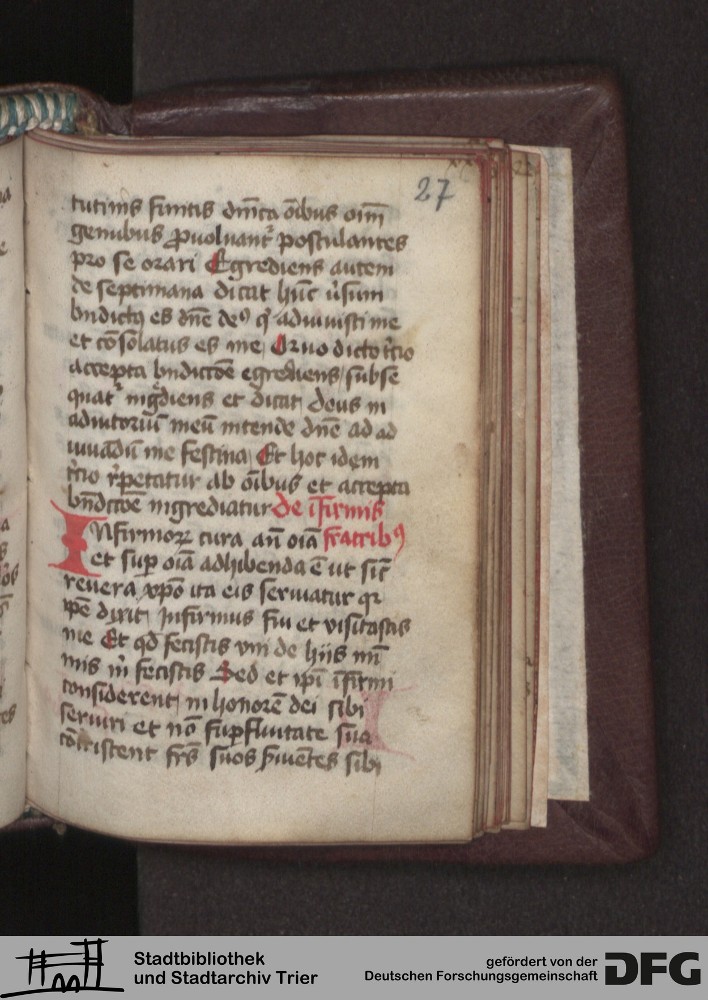 27
tutinis finitis dn̄ica oībus oīm
genubus ꝓuoluant᷑ postulantes
pro se orari Egrediens autem
de septimana dicat hūc v̓sum
bn̄dictꝰ es dn̄e deꝰ q̓ adiuuisti me
et cōsolatus es me, Quo dicto t̓cio
accepta bn̄dictōe egrediens, subse
quat᷑ īgrediens et dicat, deus in
adiutoriū meū intende dn̄e ad ad
iuuādū me festina, Et hoc idem
t̓cio r̓petatur ab oībus et accepta
bn̄dictōe ingrediatur de īfirmis
Infirmoꝝ cura an̄ oīa fratribꝰ
et suꝑ oīa adhibenda ē ut sic̄
reuera xp̄o ita eis seruiatur qr
ip̄e dixit, Infirmus fui et visitastis
me Et qd̄ fecistis vni de hiis mī
mis m̄ fecistis Sed et ip̄i īfirmi
considerent, in honorē dei sibi
seruiri et nō suꝑfluitate sua
cōtristent fr̄s suos s̓uiētes sibi
Stadtbibliothek
und Stadtarchiv Trier
gefördert von der
Deutschen Forschungsgemeinschaft
DFG